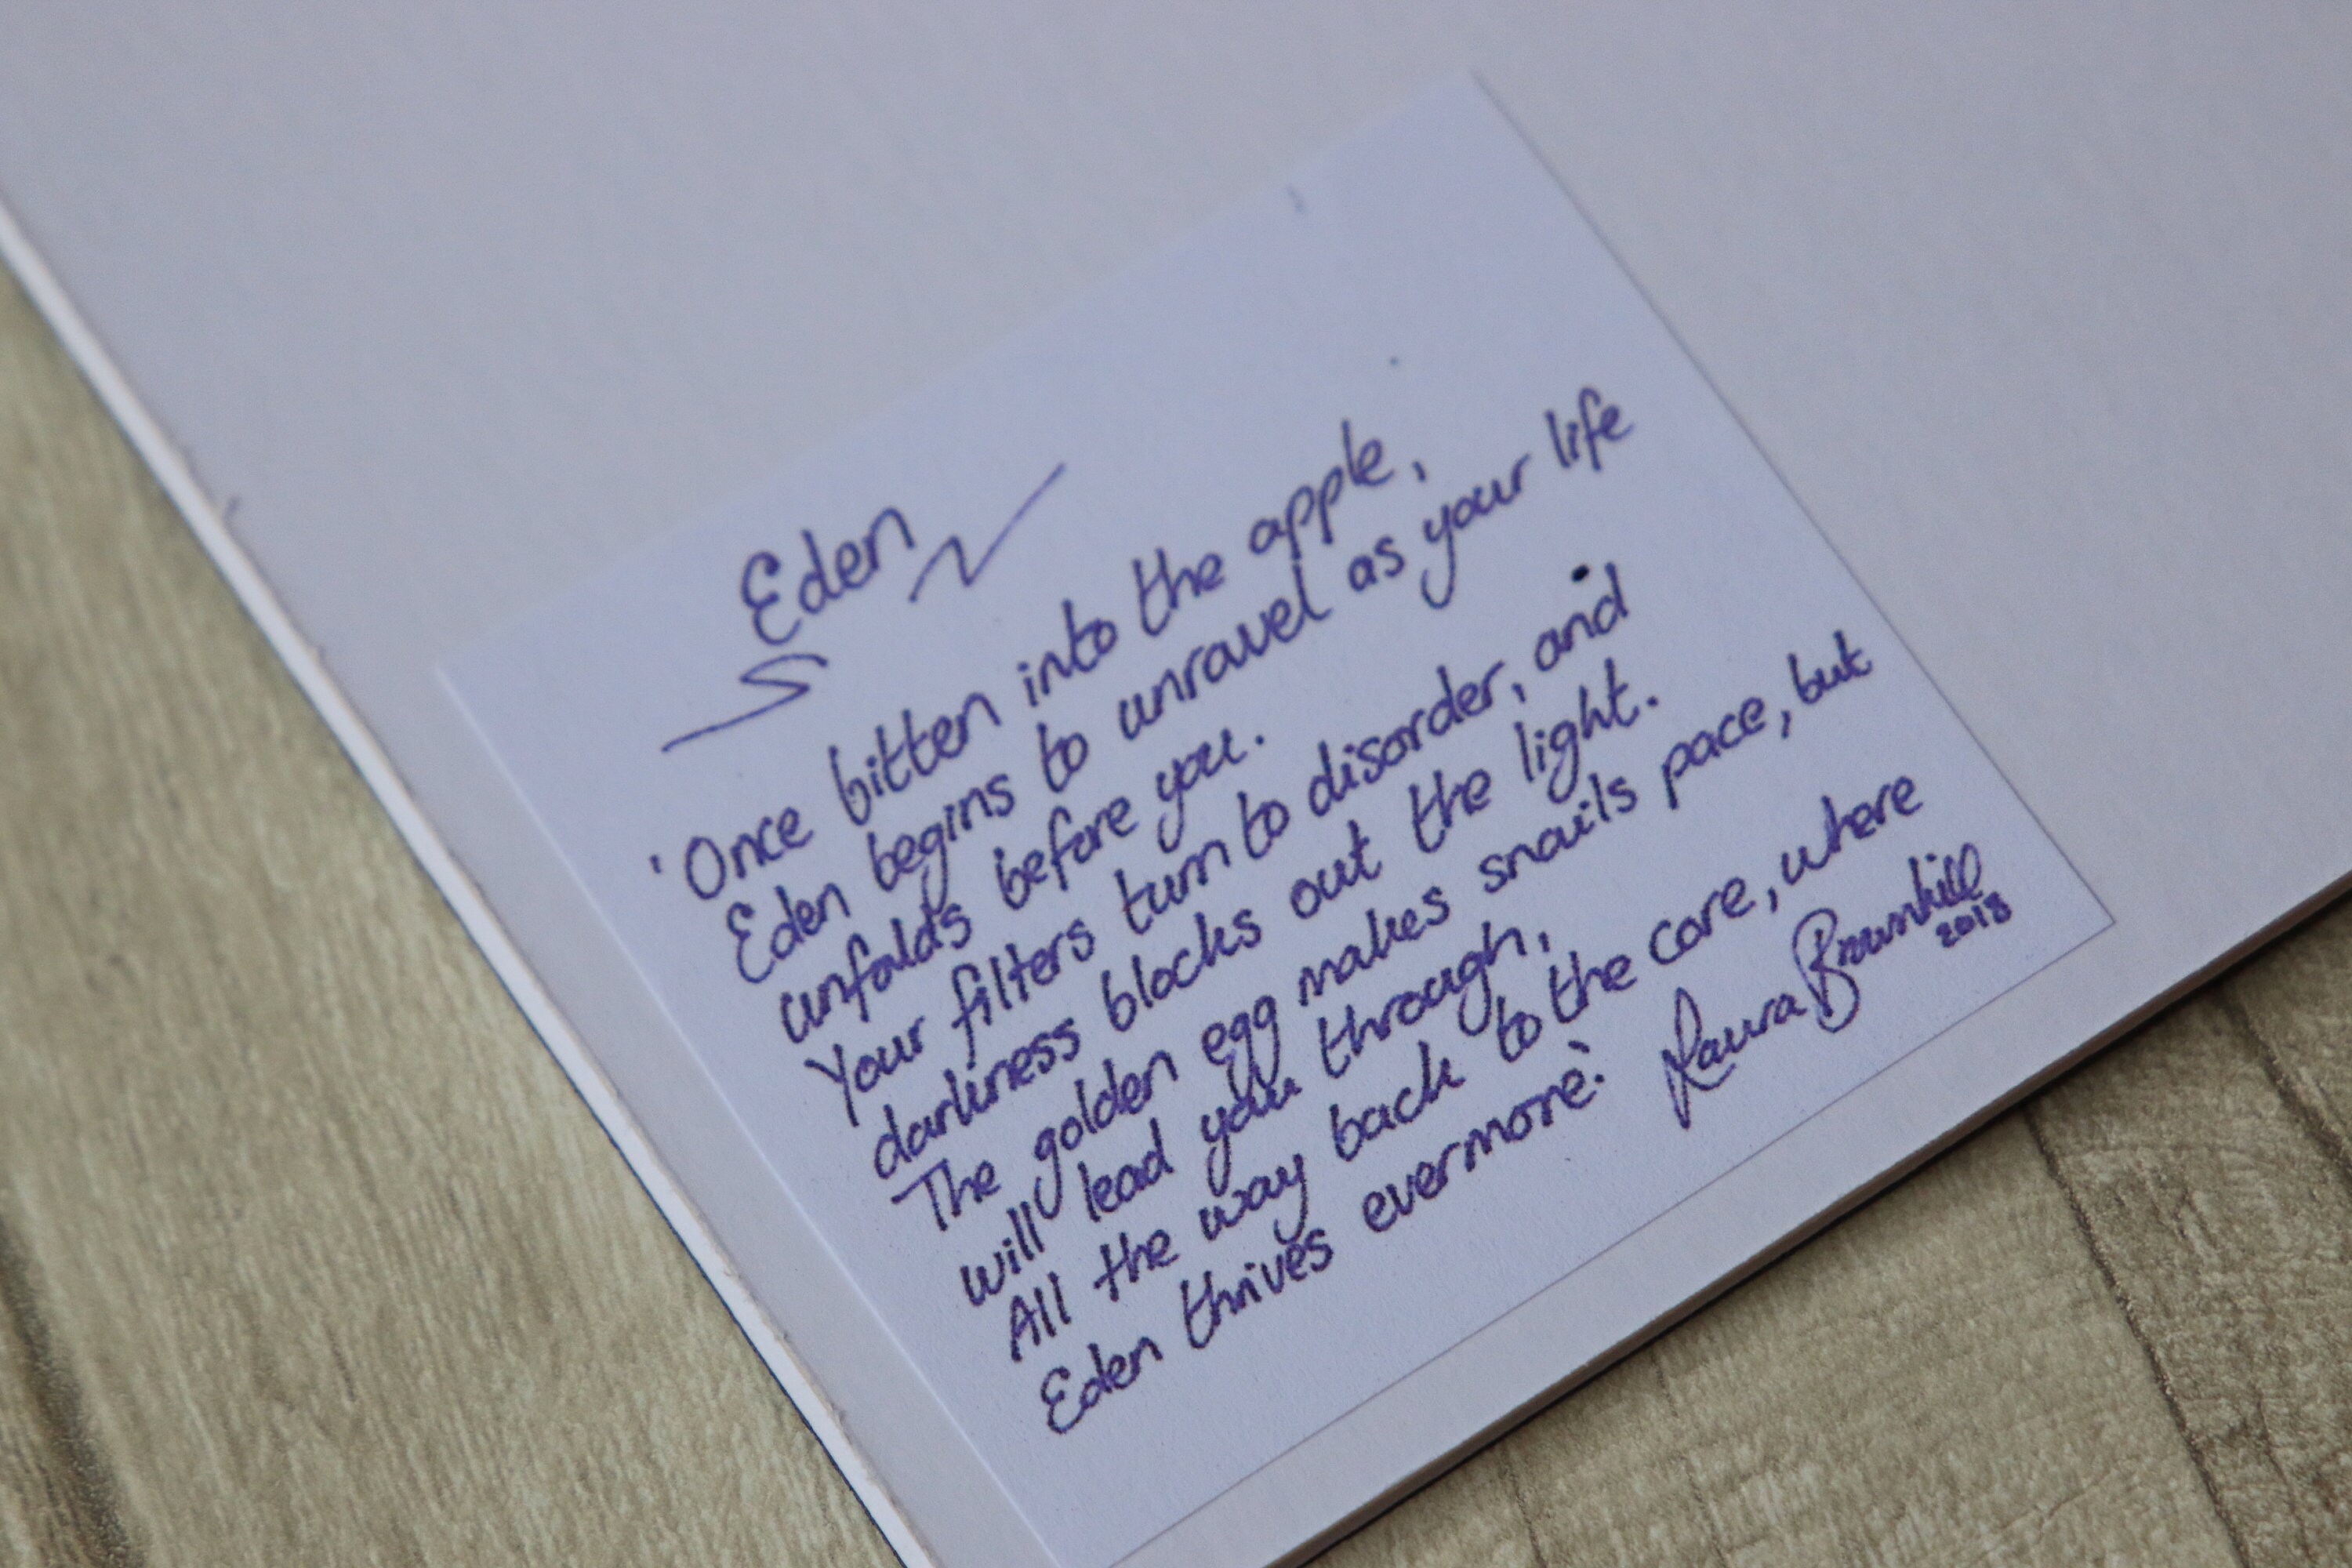 Eden
'Once bitten into the apple,
Eden begins to unravel as your life
unfolds before you.
Your filters turn to disorder, and
darkness blocks out the light.
The golden egg makes snails pace, but
will lead you through,
All the way back to the core, where
Eden thrives evermore.'
Laura Brownhill
2018